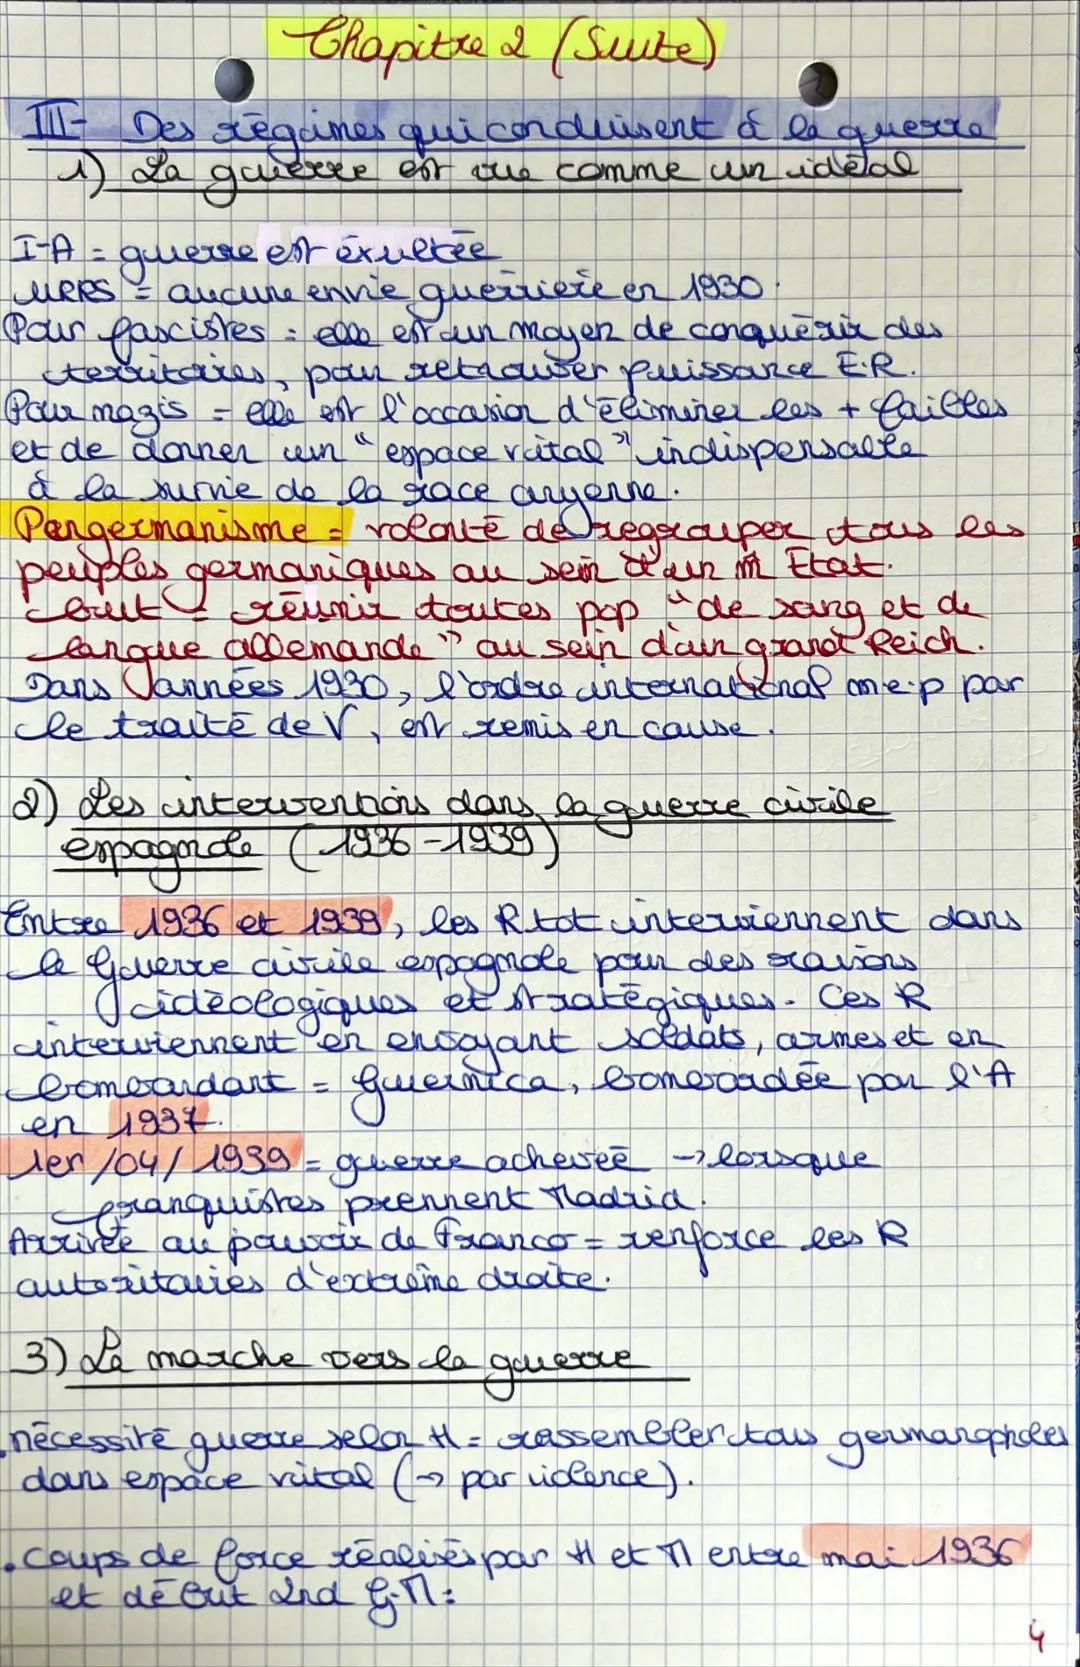 Chapitre 2 (Suite)
III- Des régimes qui conduisent à la guerre
1) La guerre est vue comme un idéal
I-A = guerre est éxultée
URRS = aucune envie guerrière en 1930.
Pour fascistes = elle est un moyen de conquérir des
territoires, pour retrouver puissance E.R.
Pour nazis = elle est l'occasion d'éliminer les + faibles
et de donner un "espace vital" indispensable
à la survie de la race aryenne.
Pangermanisme = volonté de regrouper tous les
peuples germaniques au sein d'un m̂ Etat.
but = réunir toutes pop "de sang et de
langue allemande" au sein d'un grand Reich.
Dans années 1930, l'ordre international m.e.p par
le traité de V, est remis en cause.
2) Les interventions dans la guerre civile
espagnole (1936-1939)
Entre 1936 et 1939, les R tot interviennent dans
la Guerre civile espagnole pour des raisons
idéologiques et stratégiques. Ces R
interviennent en envoyant soldats, armes et en
bombardant = Guernica, bombardée par l'A
en 1937.
1er/04/1939 = guerre achevée → lorsque
franquistes prennent Madrid.
Arrivée au pouvoir de Franco = renforce les R
autoritaires d'extrême droite.
3) La marche vers la guerre
. nécessité guerre selon H = rassembler tous germanopholes
dans espace vital (→ par violence).
. coups de force réalisés par H et M entre mai 1936
et début 2nd G.M :
4